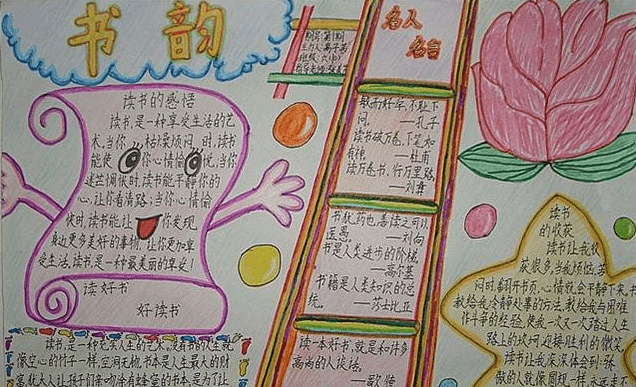 书韵
读书的感悟
读书,是一种享受生活的艺
术。当你枯燥烦闷时,读书
能使你心情愉悦,当你
迷茫惆怅时,读书能平静你的
心,让你看清路;当你心情愉
快时,读书能让你发现
身边更多美好的事物,让你更加享
受生活。读书是一种最美丽的享受!
读好书
好读书
名人
名言
敏而好学,不耻下
问。 —孔子
读书破万卷,下笔如
有神 —杜甫
读万卷书,行万里路
—刘彝
书犹药也,善读之可以
医愚。 —刘向
书是人类进步的阶梯。
—高尔基
书籍是人类知识的总
统。 —莎士比亚
读一本好书,就是和许多
高尚的人谈话。
—歌德
读书
的收获
读书让我收
获很多,当我烦恼、苦
闷时,翻开书页,心情就会平静下来,书
教给我冷静处事的方法,教给我与困难
作斗争的经验,使我一次又一次踏过人生
路上的坎坷,迎接胜利的微笑
读书让我深深体会到:张
读书,是一种充实人生的艺术,没有书的人生就
像空心的竹子一样,空洞无物。书本是人生最大的财